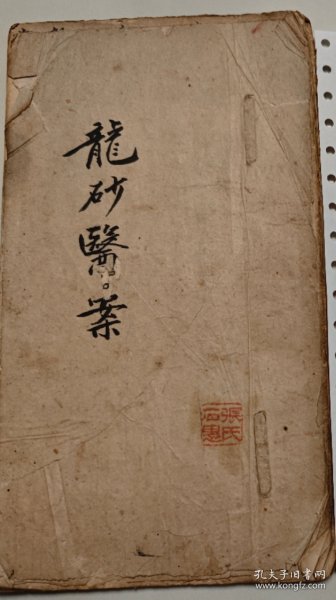 龍砂醫案
張氏
石愚
孔夫子旧书网
www.kongfz.com